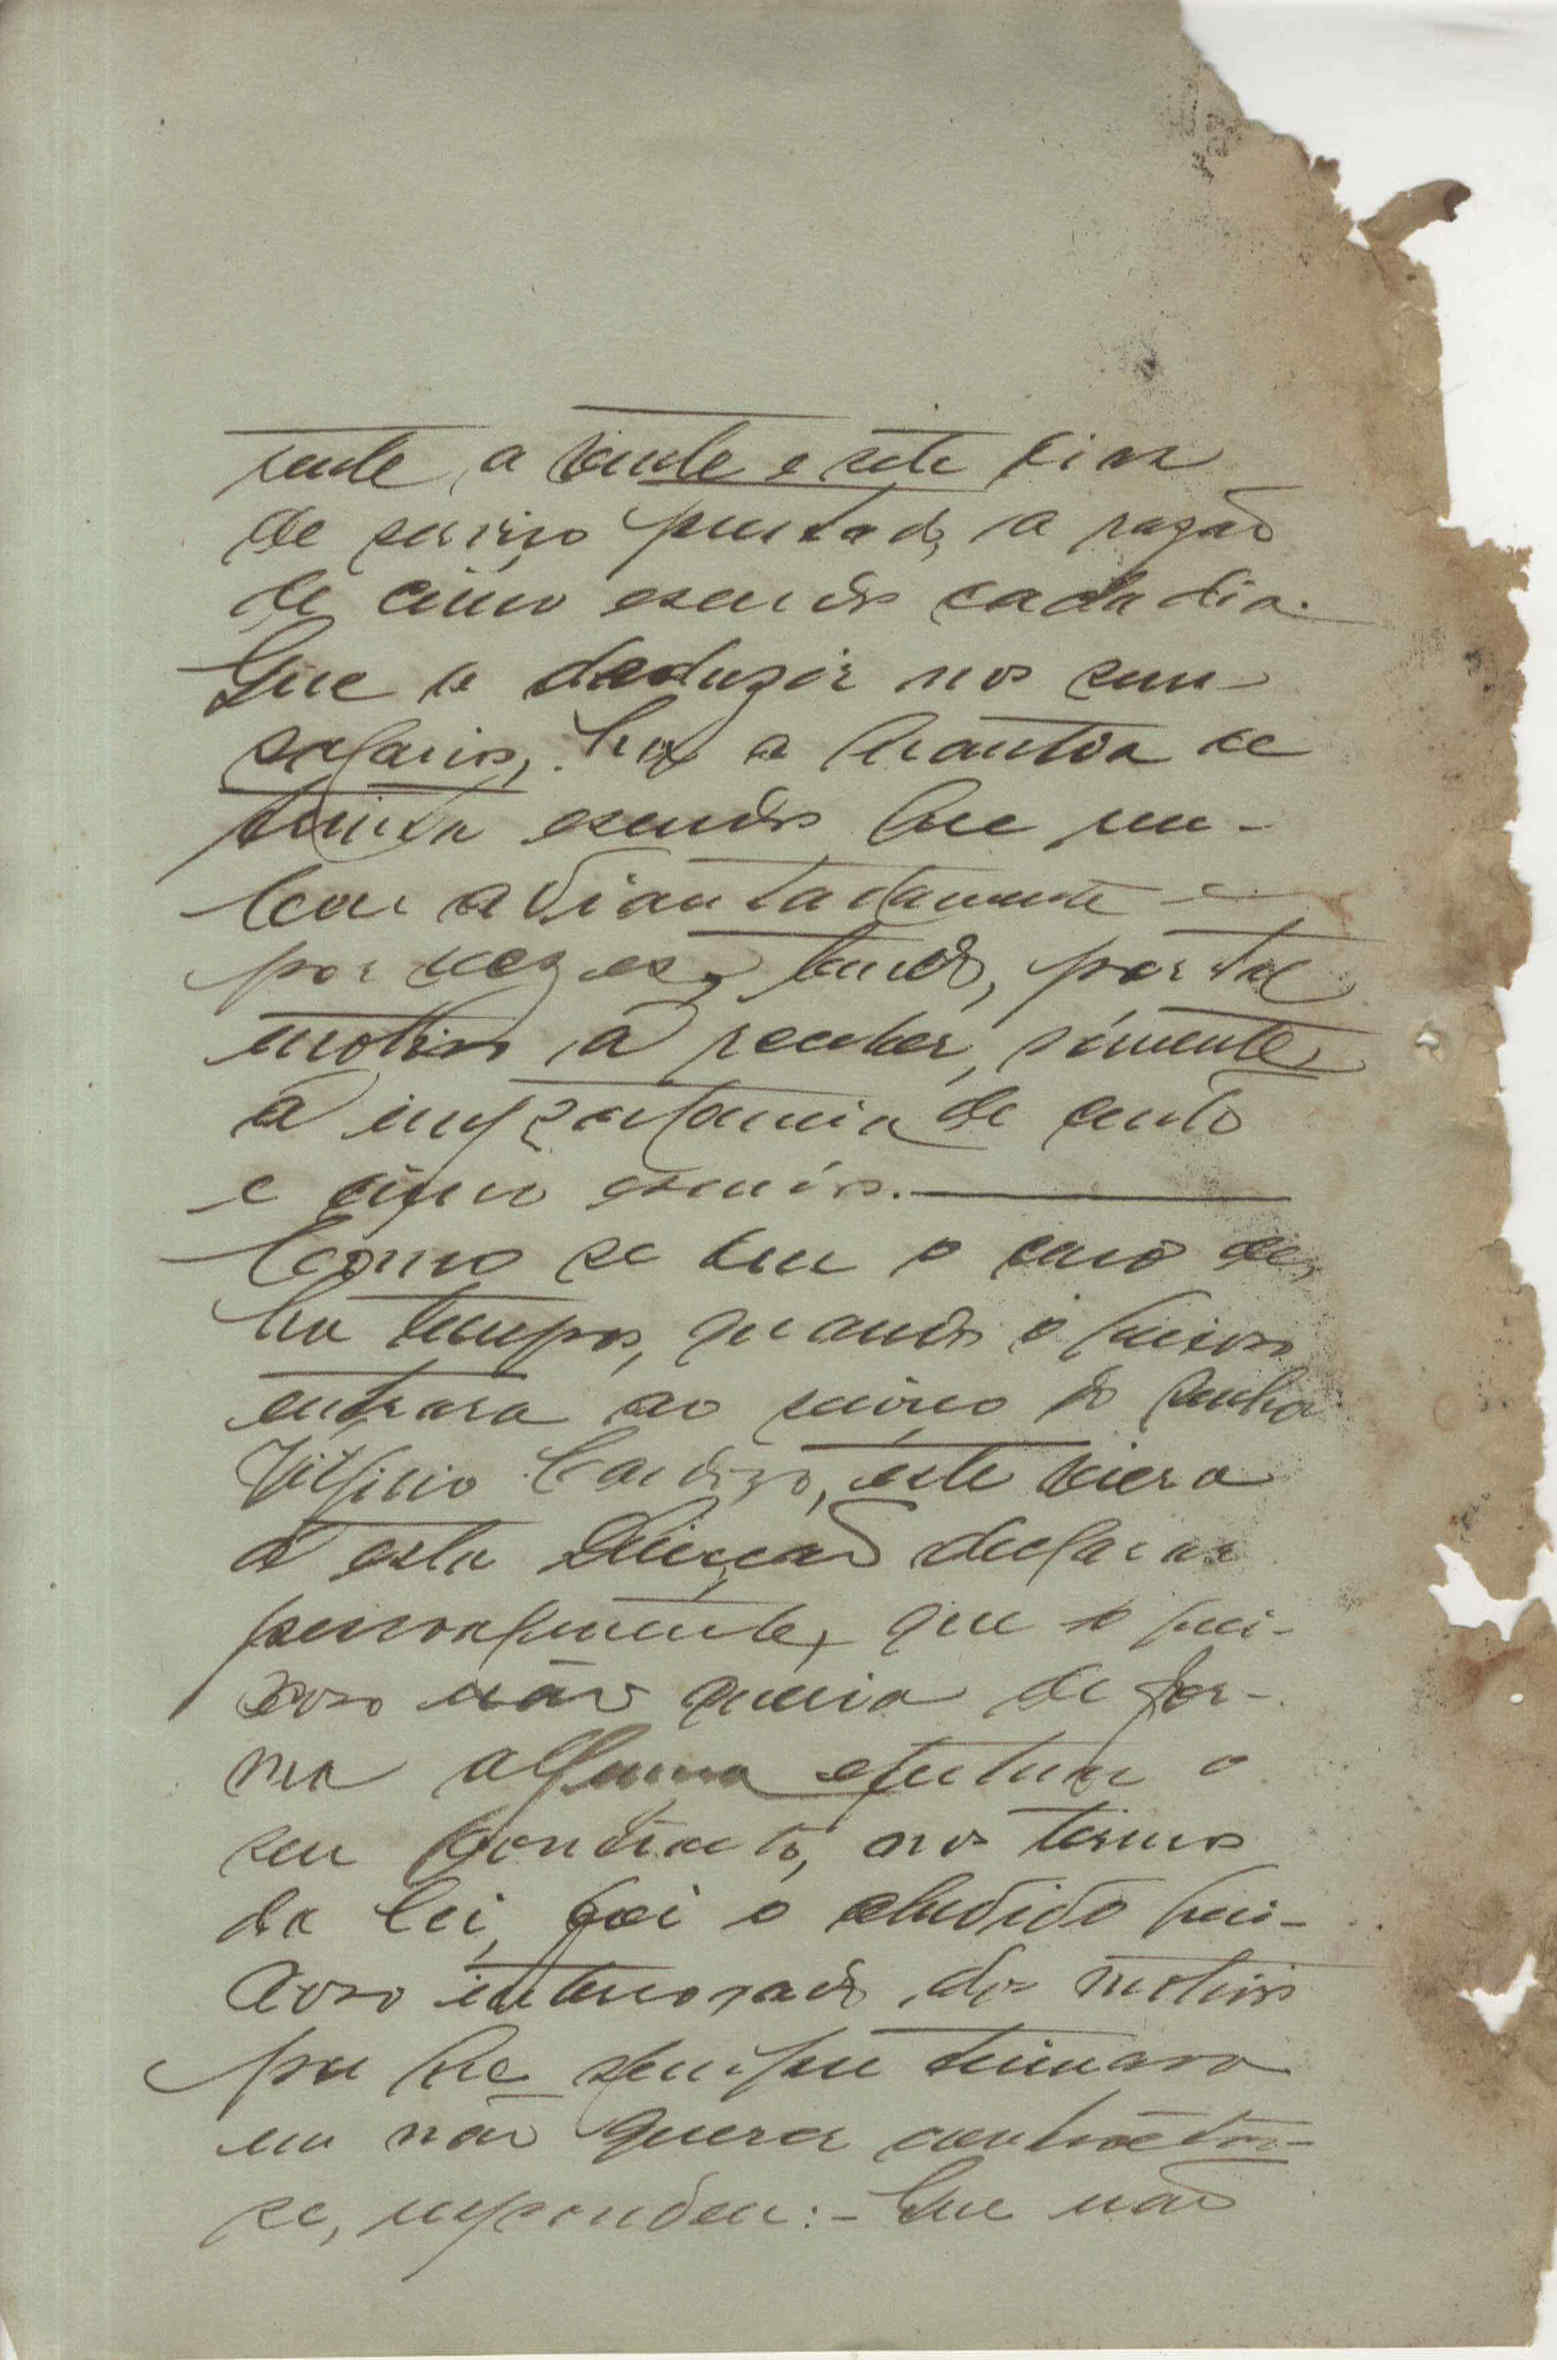 rente a vinte e sete dias
de serviço prestado, a razão
de cinco escudos cada dia.
Que a deduzir nos seus
salarios, ha a quantia de
trinta escudos que rece-
beu adiantadamente e
por vezes, tendo, por tal
motivo, a receber, sómente
a importancia de cento
e cinco escudos.
Como se deu o caso de,
ha tempos, quando o queixoso
entrara ao serviço do senhor
Virgilio Cardozo, este viera
a esta Direcção declarar
pessoalmente, que o quei-
xoso não queria de for-
ma alguma efectuar o
seu contracto, nos termos
da lei, foi o aludido quei-
xoso interrogado dos motivos
por que sempre teimara
em não querer contractar-
se, respondeu:- Que não